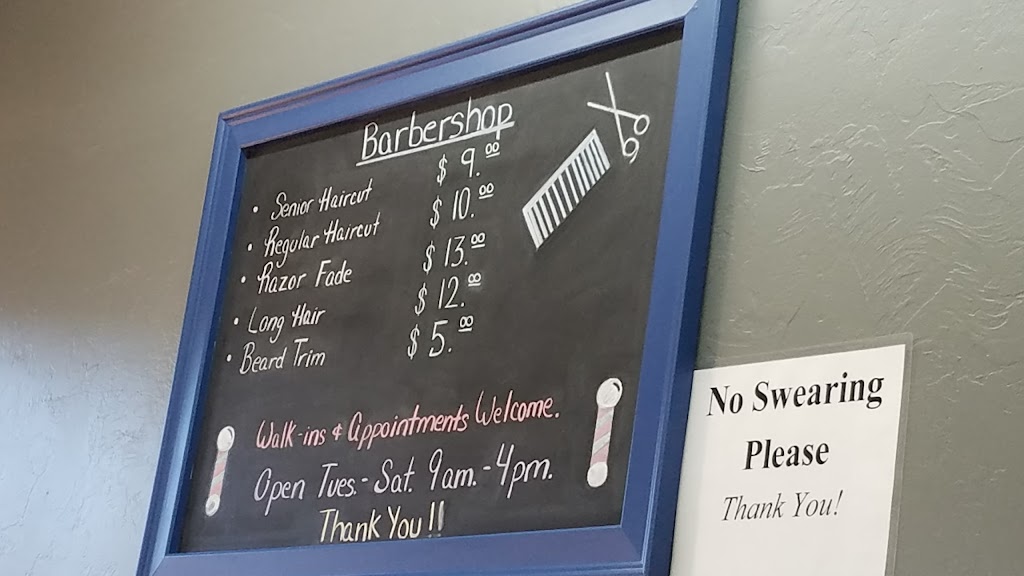 Barbershop
• Senior Haircut $ 9.00
• Regular Haircut $ 10.00
• Razor Fade $ 13.00
• Long Hair $ 12.00
• Beard Trim $ 5.00
Walk-ins & Appointments Welcome.
Open Tues.- Sat. 9am.- 4pm.
Thank You!!
No Swearing
Please
Thank You!